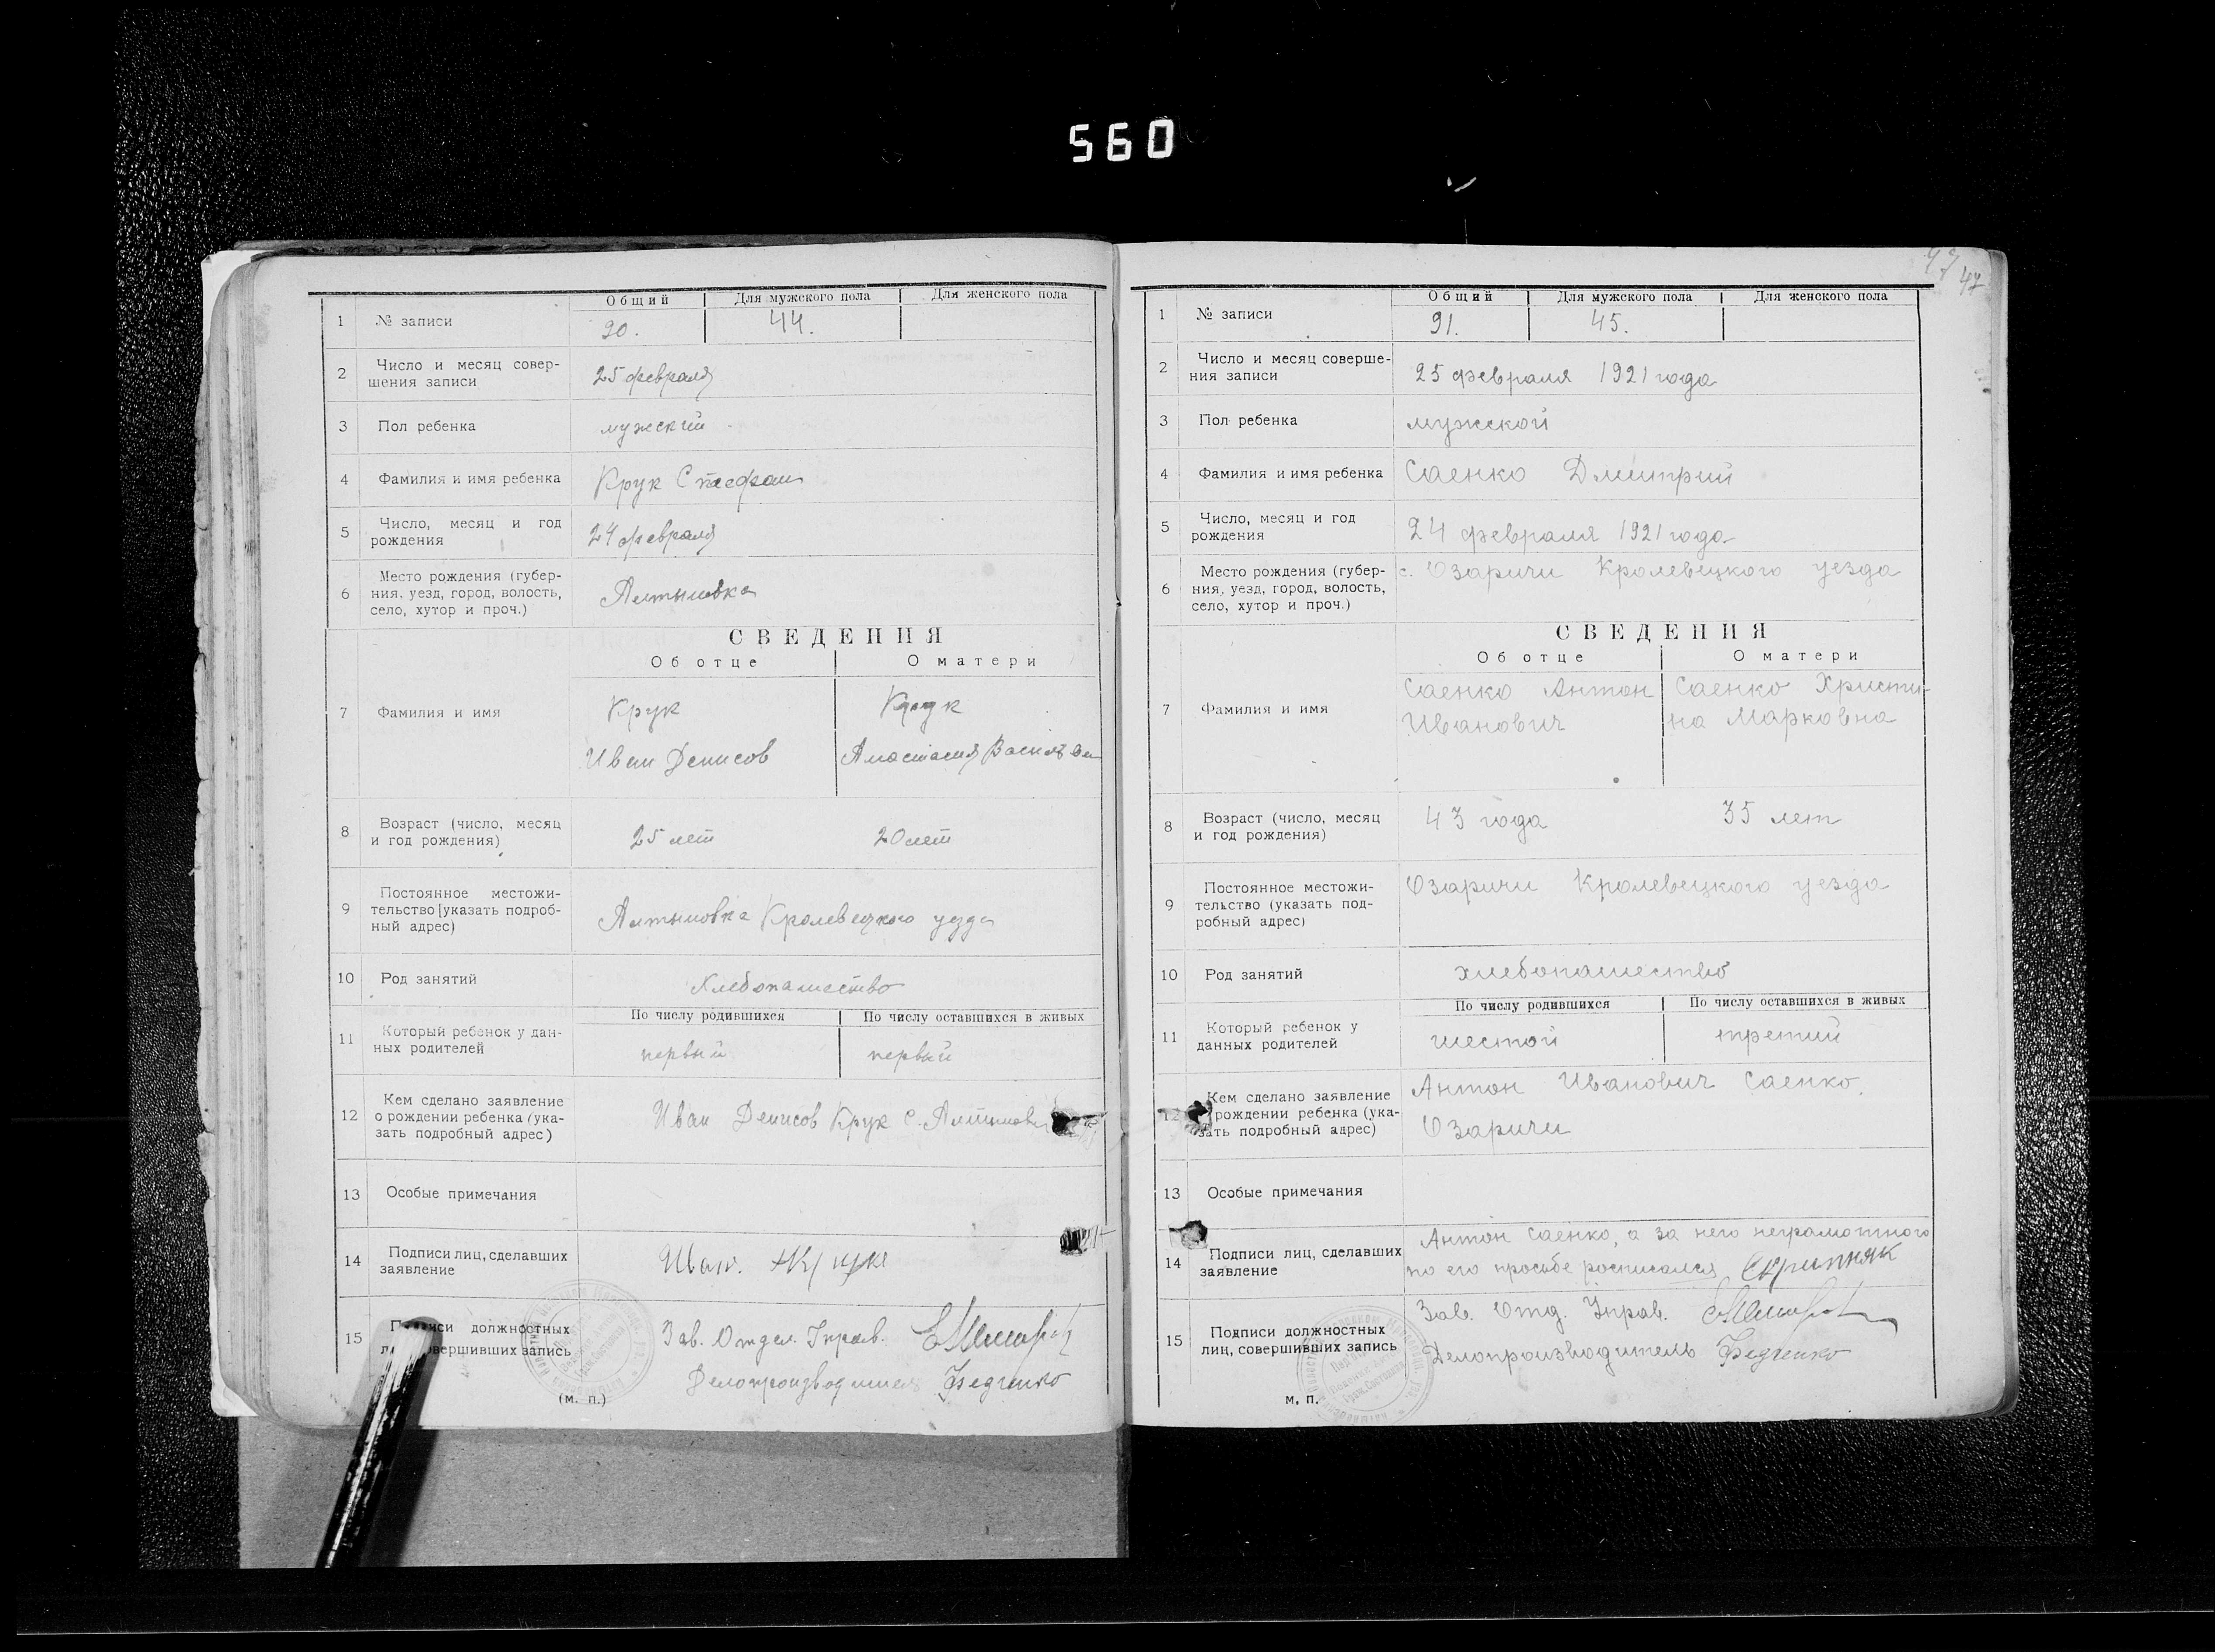 560
Общий Для мужского пола Для женского пола
1 № записи 90. 44.
2 Число и месяц совер-
шения записи 25 февраля
3 Пол ребенка мужский
4 Фамилия и имя ребенка Крук Стефан
5 Число, месяц и год
рождения 24 февраля
6 Место рождения (губер-
ния, уезд, город, волость,
село, хутор и проч.) Алтыновка
СВЕДЕНИЯ
Об отце О матери
7 Фамилия и имя Крук Крук
Иван Денисов Анастасия
8 Возраст (число, месяц
и год рождения) 25 лет 20 лет
9 Постоянное местожи-
тельство [указать подроб-
ный адрес) Алтыновка Кролевецкого уезда
10 Род занятий Хлебопашество
По числу родившихся По числу оставшихся в живых
11 Который ребенок у дан-
ных родителей первый первый
12 Кем сделано заявление
о рождении ребенка (ука-
зать подробный адрес) Иван Денисов Крук с.
13 Особые примечания
14 Подписи лиц, сделавших
заявление Иван Крук
15 должностных
совершивших запись
Зав. Отдел. Управ.
Делопроизводитель Федченко
(м. п.)
47 47
Общий Для мужского пола Для женского пола
1 № записи 91. 45.
2 Число и месяц соверше-
ния записи 25 февраля 1921 года
3 Пол ребенка мужской
4 Фамилия и имя ребенка Саенко Дмитрий
5 Число, месяц и год
рождения 24 февраля 1921 года
6 Место рождения (губер-
ния, уезд, город, волость,
село, хутор и проч.) с. Озаричи Кролевецкого уезда
СВЕДЕНИЯ
Об отце О матери
7 Фамилия и имя Саенко Антон Саенко Христи-
Иванович на Марковна
8 Возраст (число, месяц
и год рождения) 43 года 35 лет
9 Постоянное местожи-
тельство (указать под-
робный адрес) Озаричи Кролевецкого уезда
10 Род занятий хлебопашество
По числу родившихся По числу оставшихся в живых
11 Который ребенок у
данных родителей шестой третий
12 Кем сделано заявление
рождении ребенка (ука-
зать подробный адрес) Антон Иванович Саенко.
Озаричи
13 Особые примечания
14 Подписи лиц, сделавших
заявление Антон Саенко, а за него неграмотного
по его просьбе росписался Скрипняк
15 Подписи должностных
лиц, совершивших запись Зав. Отд. Управ.
Делопроизводитель Федченко
м. п.